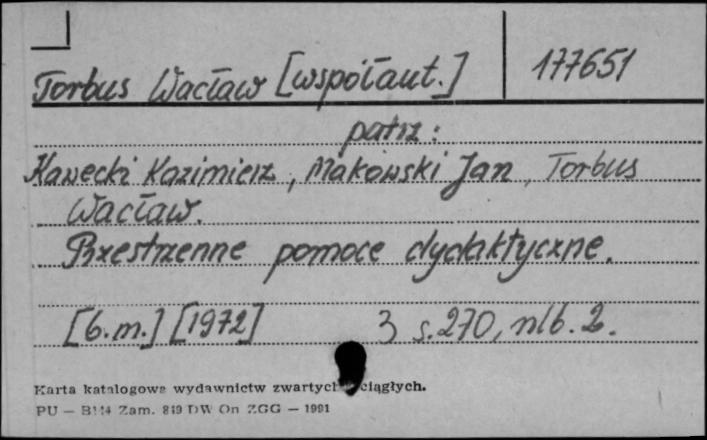 Torbus Wacław [współaut.] 177651
patrz:
Kawecki Kazimierz, Makowski Jan, Torbus
Wacław.
Przestrzenne pomoce dydaktyczne.
[b.m.] [1972] 3 s. 270, nlb. 2.
Karta katalogowa wydawnictw zwartych ciągłych.
PU — B114 Zam. 819 DW On ZGG — 1991